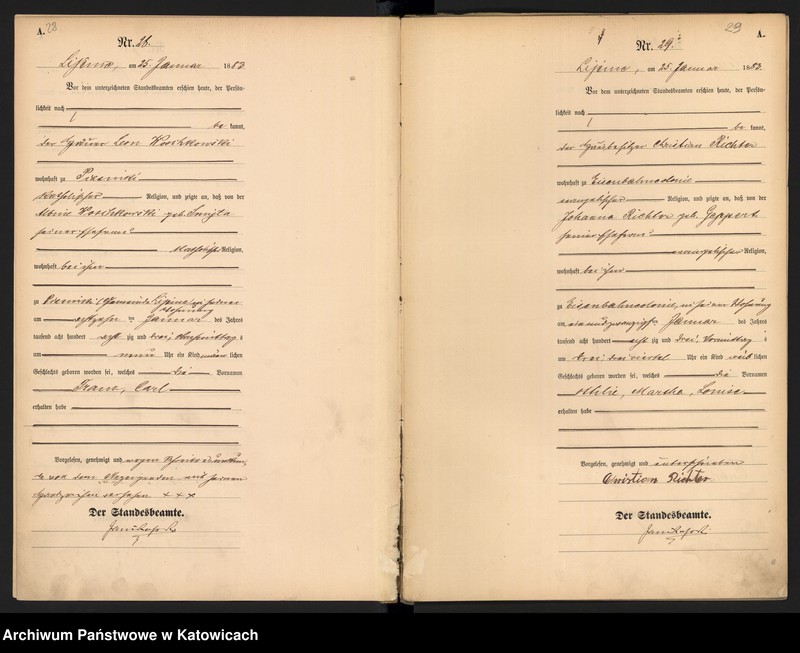 A. 28
Nr. 28.
Lipine, am 25. Januar 1883.
Vor dem unterzeichneten Standesbeamten erschien heute, der Persön-
lichkeit nach
be kannt,
der Leon Woschkowski
wohnhaft zu Piasniki
katholischer Religion, und zeigte an, daß von der
Albine Woschkowski geb.
seiner Ehefrau
katholischer Religion,
wohnhaft bei ihm
zu Piasniki Gemeinde Lipine in seiner
Wohnung
am Januar des Jahres
tausend acht hundert acht zig und drei, Nachmittag s
um neun Uhr ein Kind männ lichen
Geschlechts geboren worden sei, welches die Vornamen
Franz, Carl
erhalten habe
Vorgelesen, genehmigt und wegen
von dem und seinem
Handzeichen versehen + + +
Der Standesbeamte.
29 A.
Nr. 29.
Lipine, am 25. Januar 1883.
Vor dem unterzeichneten Standesbeamten erschien heute, der Persön-
lichkeit nach
be kannt,
der Christian Richter
wohnhaft zu Eisenbahncolonie
evangelischer Religion, und zeigte an, daß von der
Johanna Richter geb. Geppert
seiner Ehefrau
evangelischer Religion,
wohnhaft bei ihm
zu Eisenbahncolonie, in seiner Wohnung
am ein und zwanzigsten Januar des Jahres
tausend acht hundert acht zig und drei, Vormittag s
um drei drei viertel Uhr ein Kind weib lichen
Geschlechts geboren worden sei, welches die Vornamen
Martha, Louise
erhalten habe
Vorgelesen, genehmigt und unterschrieben
Christian Richter
Der Standesbeamte.
Archiwum Państwowe w Katowicach